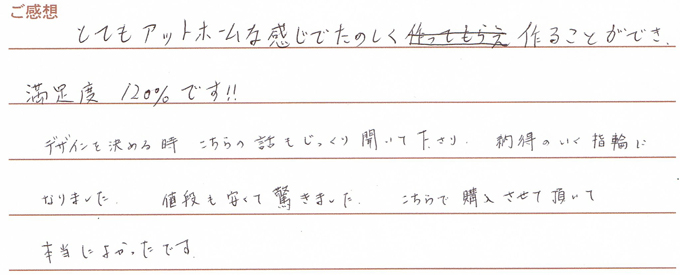 ご感想
とてもアットホームな感じでたのしく作ってもらえ 作ることができ、
満足度 120%です!!
デザインを決める時 こちらの話もじっくり聞いて下さり、 納得のいく指輪に
なりました。 値段も安くて驚きました。 こちらで購入させて頂いて
本当によかったです。